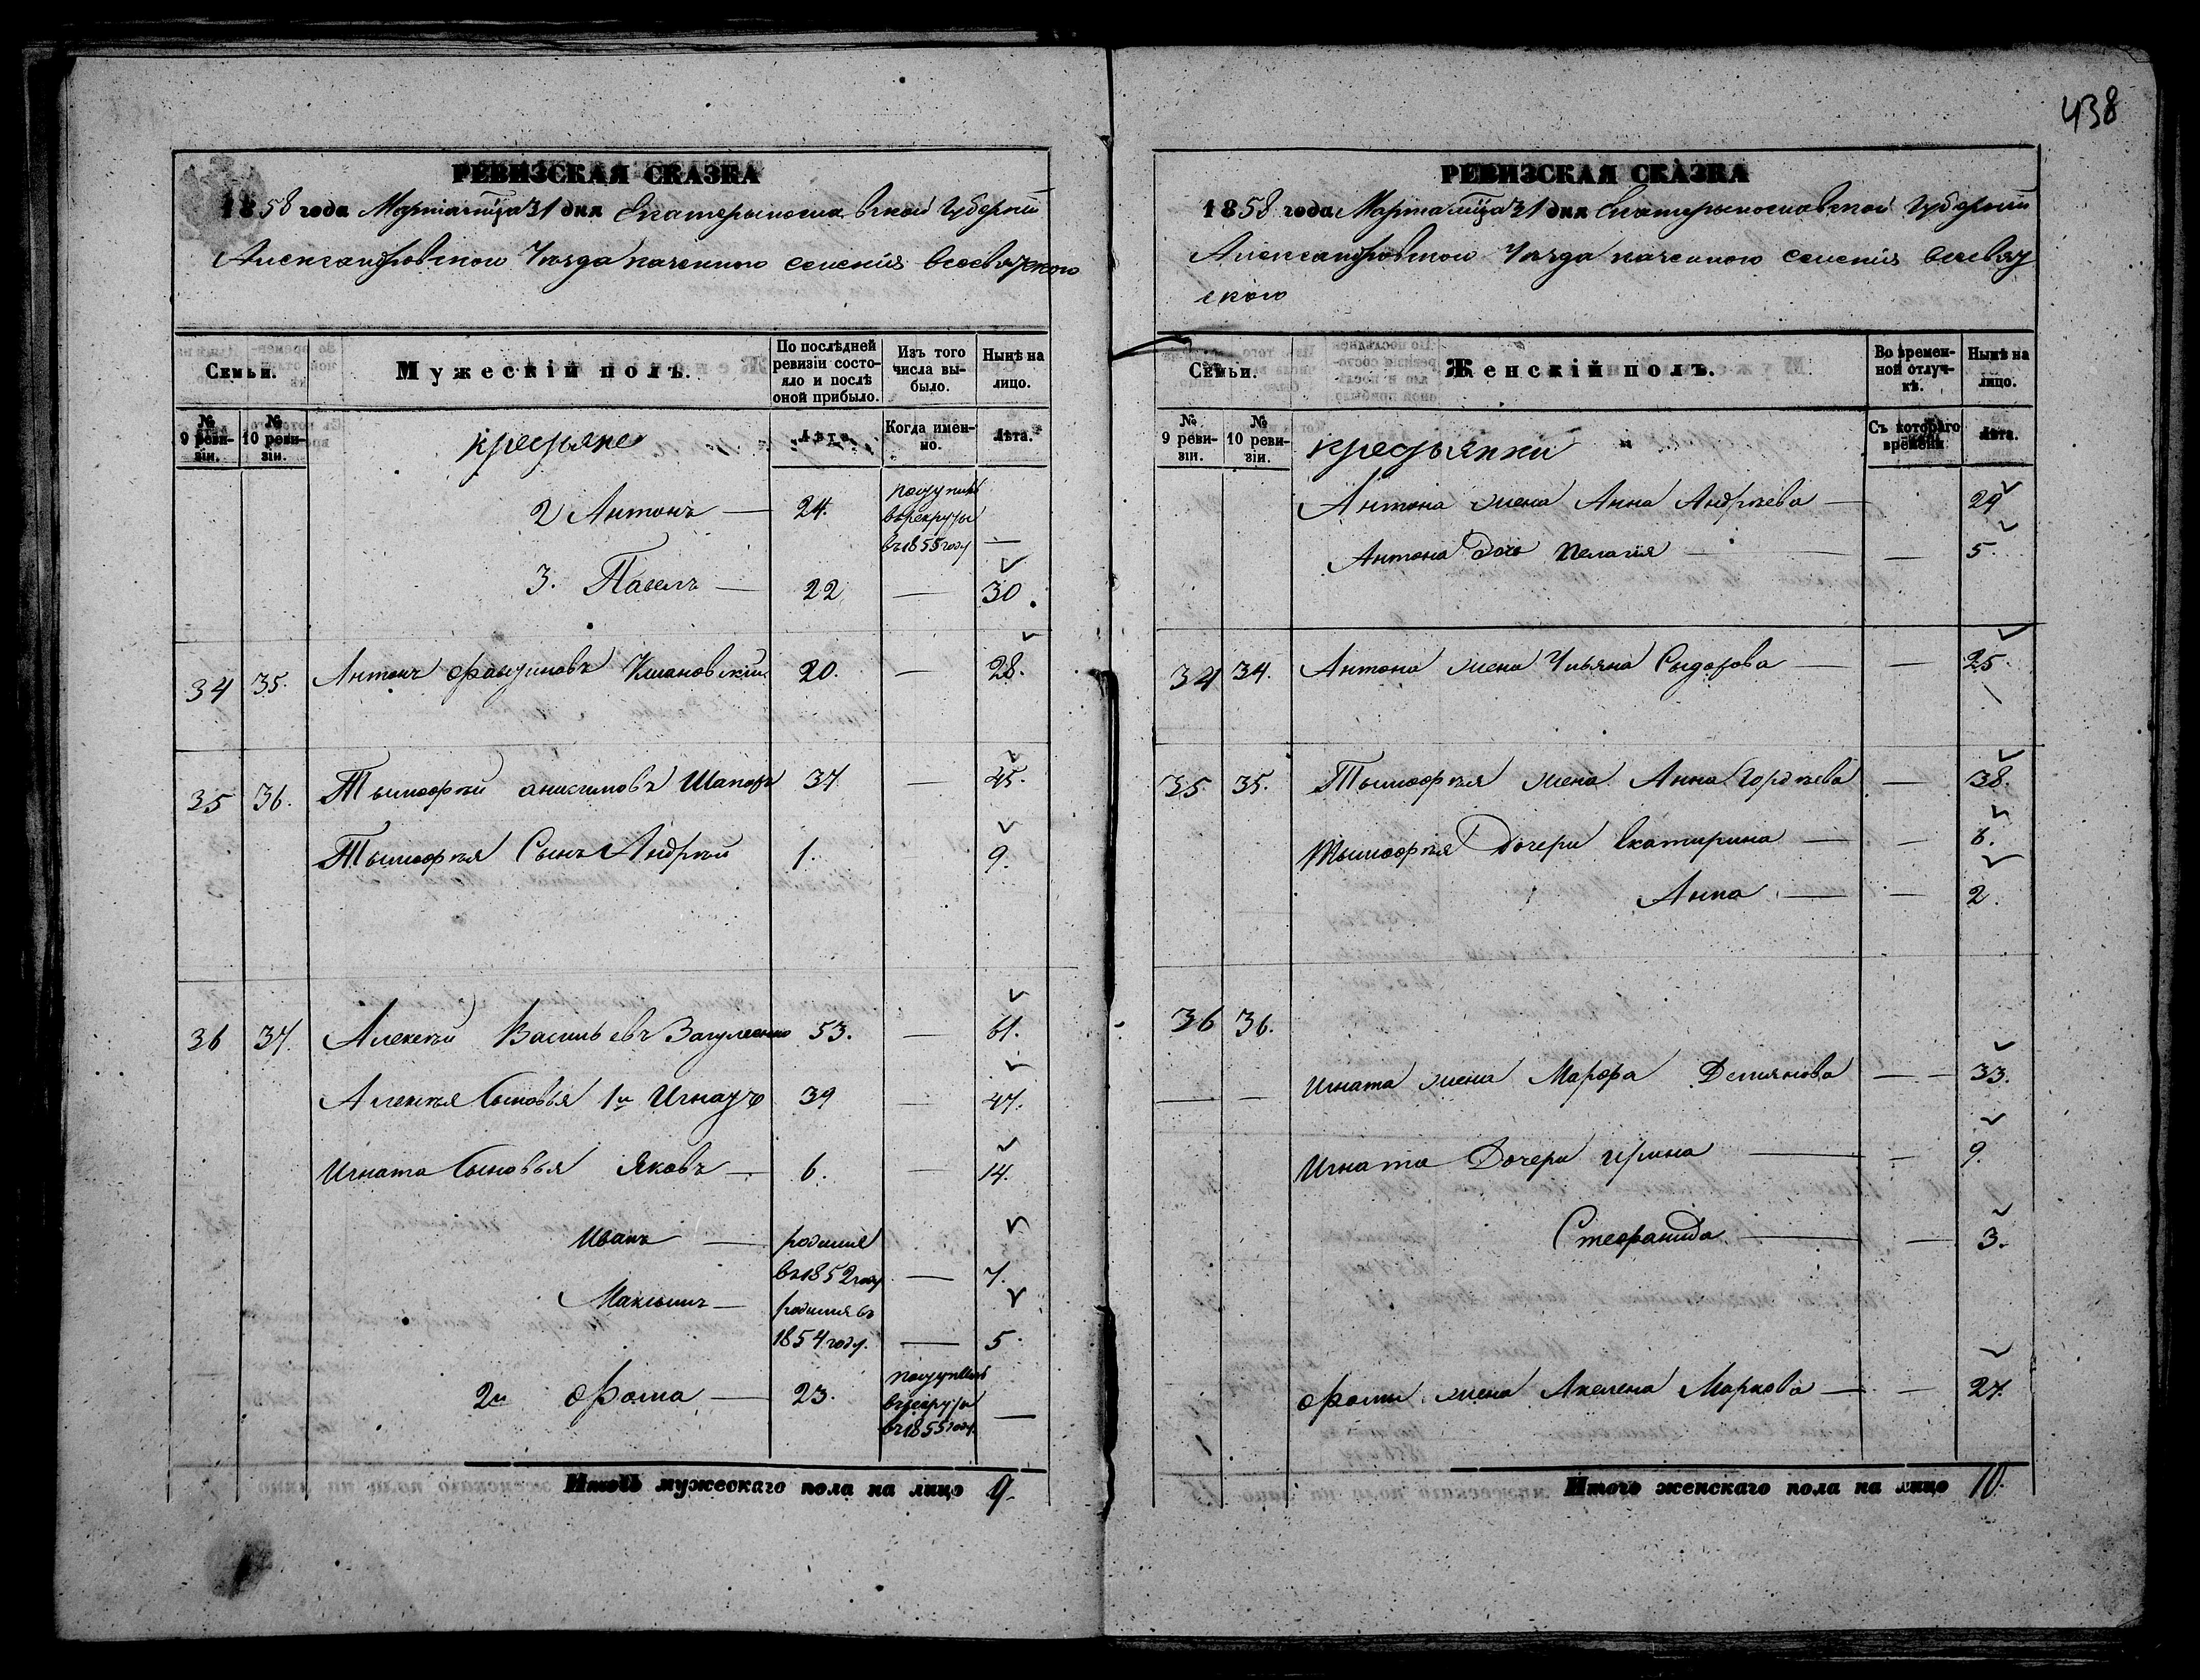 438
РЕВИЗСКАЯ СКАЗКА
1858 года Марта м-ца 31 дня Екатерынославской Губернии
Александровского Уезда казенного селения
Семьи.
Мужескій полъ.
По послѣдней ревизіи состояло и послѣ оной прибыло.
Изъ того числа выбыло.
Нынѣ на лицо.
№ 9 ревизіи.
№ 10 ревизіи.
крестьяне
Лѣта.
Когда именно.
Лѣта.
2 Антонъ — 24. поступилъ въ рекруты въ 1855 году —
3. Павелъ — 22 — 30.
34 35. Антонъ 20. — 28.
35 36. Тымофѣй Анисимовъ Шапарь 37 — 45.
Тымофѣя Сынъ Андрѣй 1. — 9.
36 37. Алексѣй Васильевъ 53. — 61.
Алексѣя Сыновья 1й Игнатъ 39 — 47.
Игната Сыновья Яковъ — 6. — 14.
Иванъ — родился въ 1852 году — 7.
Максымъ — родился въ 1854 году. — 5.
2й Фома — 23. поступилъ въ рекруты въ 1855 году. —
Итого мужескаго пола на лицо 9.
РЕВИЗСКАЯ СКАЗКА
1858 года Марта м-ца 31 дня Екатерынославской Губернии
Александровского Уезда казенного селения
ского
Семьи.
Женскій полъ.
Во временной отлучкѣ.
Нынѣ на лицо.
№ 9 ревизіи.
№ 10 ревизіи.
крестьянки
Съ котораго времени.
Лѣта.
Антона жена Анна Андрѣева — 29
Антона дочь Пелагія — — 5.
34 34. Антона жена Ульяна Сыдорова — — 25.
35. 35. Тымофѣя жена Анна Гордѣева — 38.
Тымофѣя Дочери Екатирина — — 6.
Анна — — 2.
36 36.
Игната жена Марфа Демянова — — 33.
Игната Дочери Ирина — — 9.
Стефанида — — 3.
Фомы жена Акелена Маркова — — 27.
Итого женскаго пола на лицо 10.